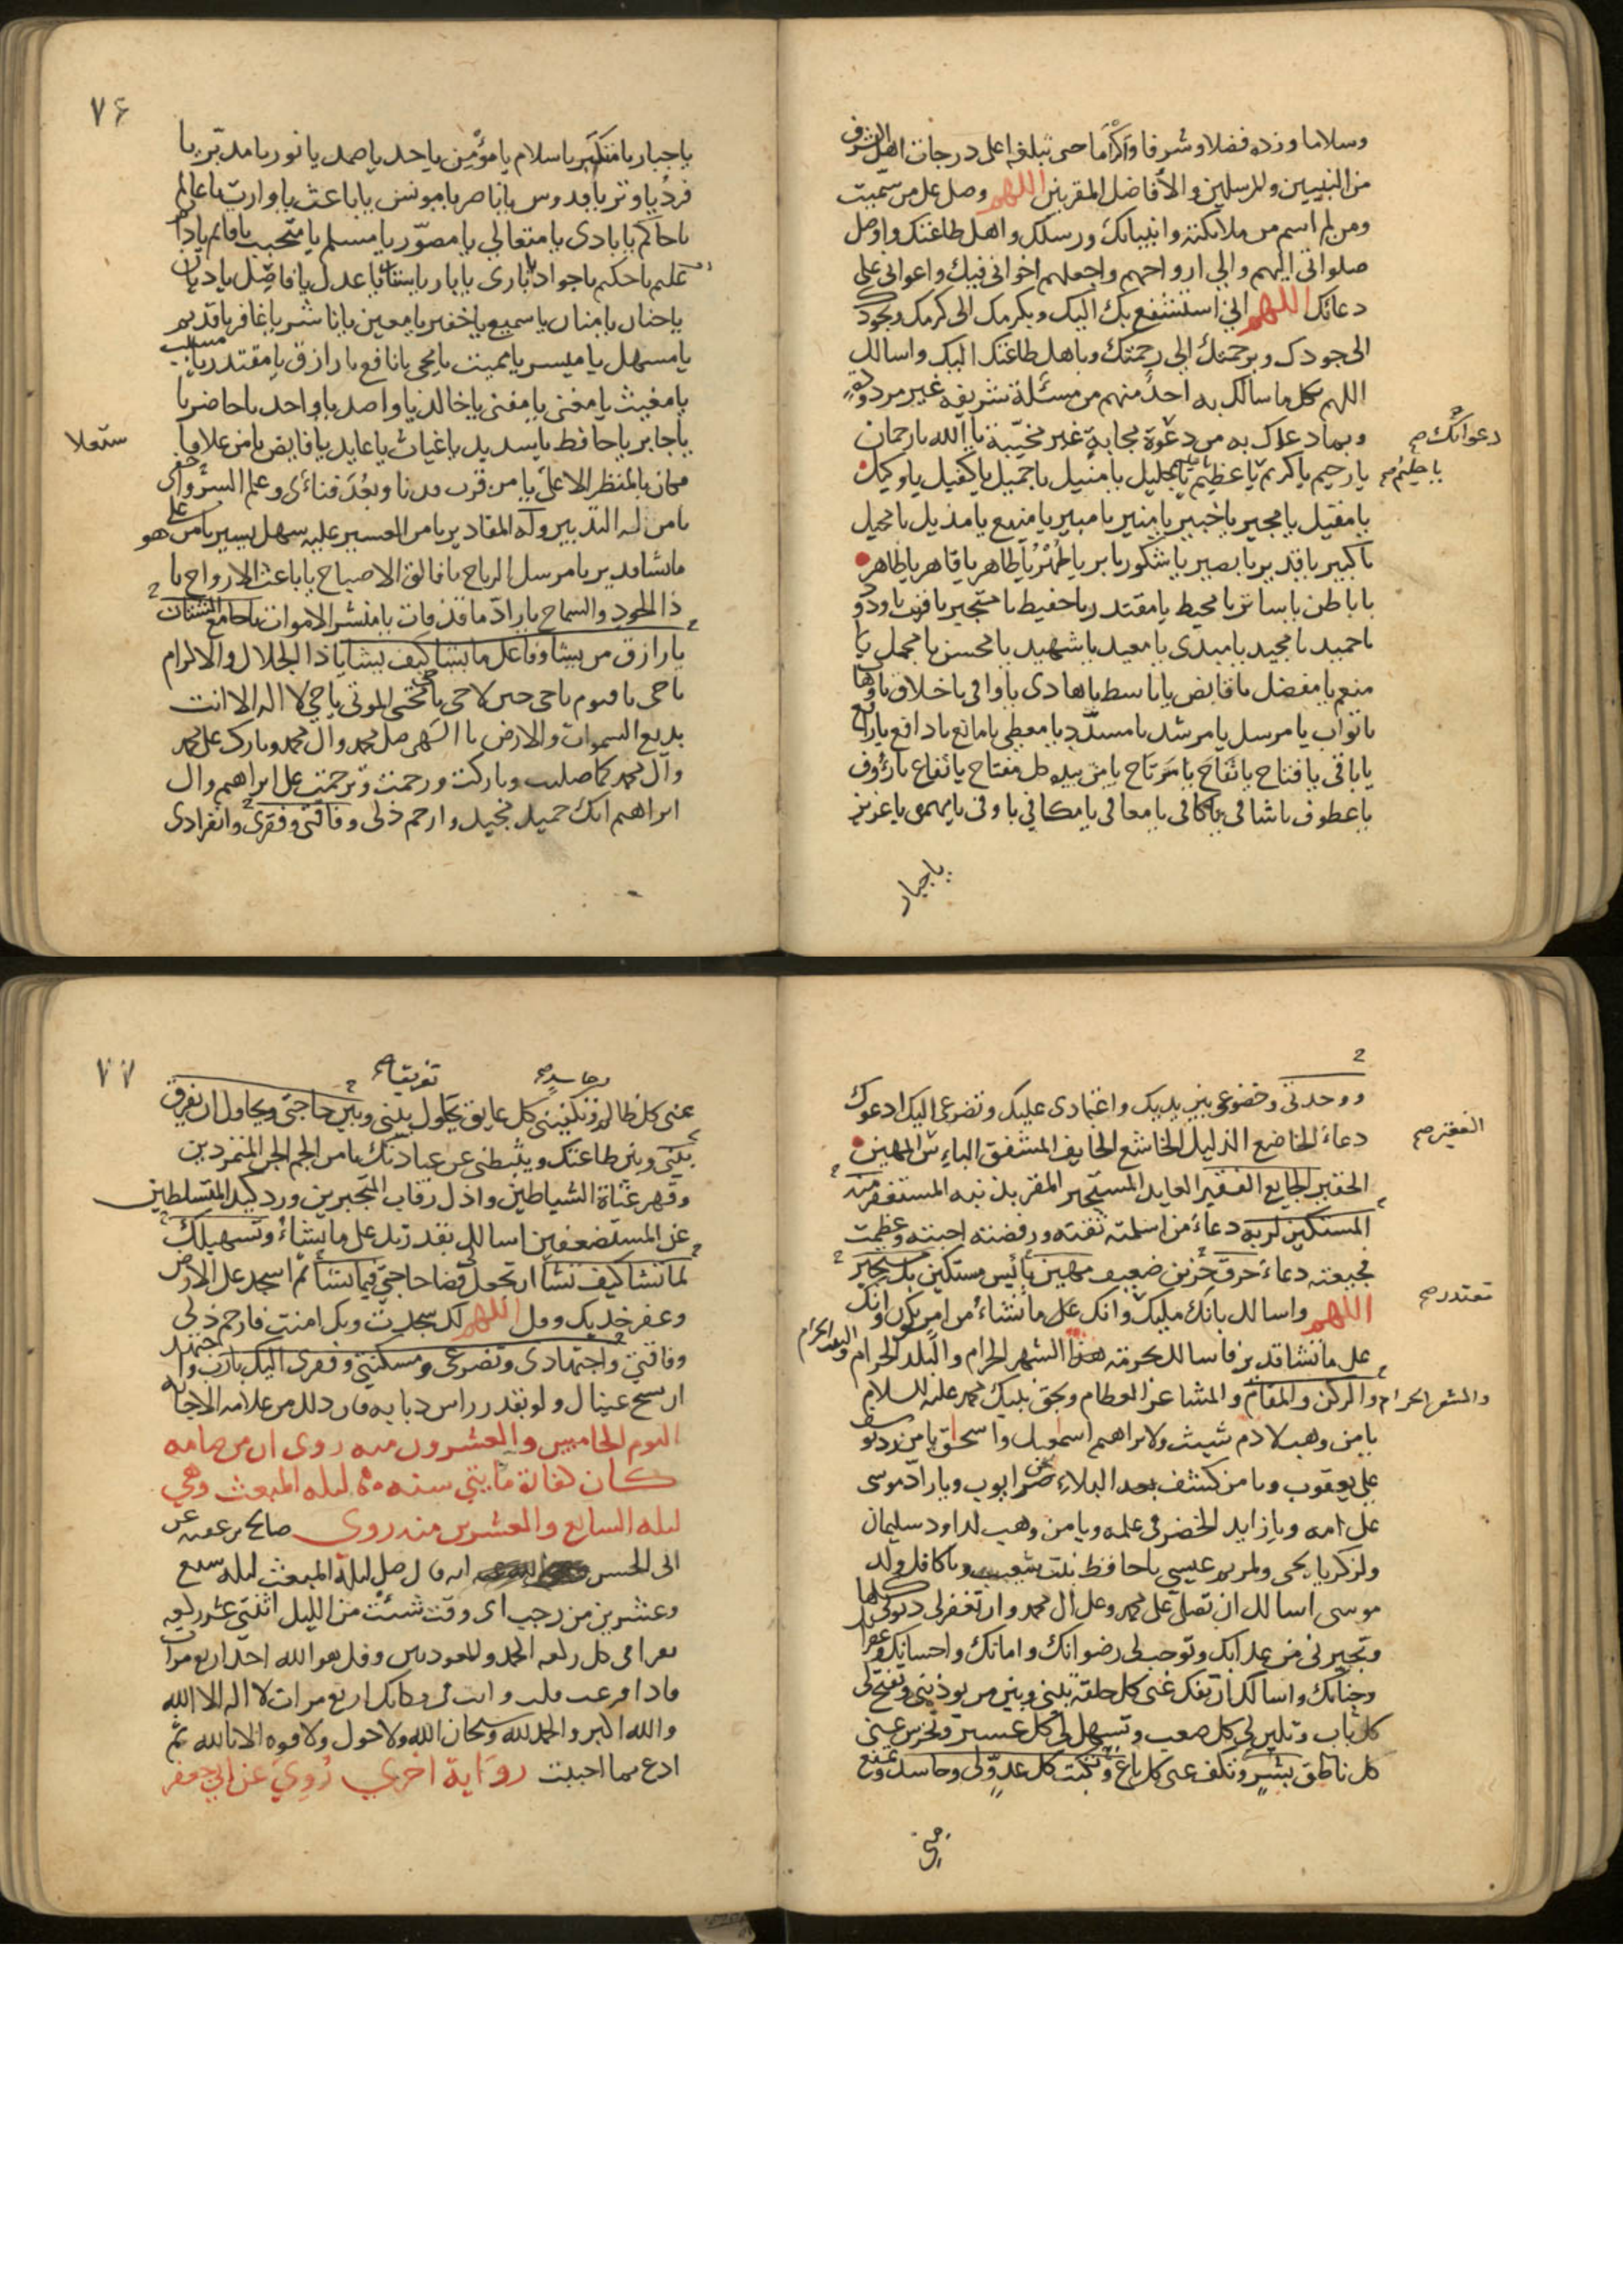 وسلاما وزده فضلا وشرفا واكراما حتى تبلغه اعلى درجات اهل الشرف
من النبيين والمرسلين والأفاضل المقربين اللهم وصل على من سميت
ومن لم اسم من ملائكتك وانبيائك ورسلك واهل طاعتك واوصل
صلواتى اليهم والى ارواحهم واجعلهم اخوانى فيك واعوانى على
دعائك اللهم انى استشفع بك اليك وبكرمك الى كرمك وبجودك
الى جودك وبرحمتك الى رحمتك وباهل طاعتك اليك واسالك
اللهم بكل ما سالك به احد منهم من مسئلة شريفة غير مردودة
دعوانك صح
وبما دعوك به من دعوة مجابة غير مخيبة يا الله يا رحمان
يا حليم صح
يا رحيم يا كريم يا عظيم يا جليل يا منيل يا جميل يا كفيل يا وكيل
يا مقيل يا مجير يا خبير يا منير يا مبير يا منيع يا مذيل يا محيل
يا كبير يا قدير يا بصير يا شكور يا بر يا طهر يا طاهر يا قاهر يا ظاهر
يا باطن يا ساتر يا محيط يا مقتدر يا حفيظ يا متجبر يا قريب يا ودود
يا حميد يا مجيد يا مبدى يا معيد يا شهيد يا محسن يا مجمل يا
منعم يا مفضل يا قابض يا باسط يا هادى يا وافى يا خلاق يا وهاب
يا تواب يا مرسل يا مرشد يا مسدد يا معطى يا مانع يا دافع يا رافع
يا باقى يا فتاح يا نفاح يا مرتاح يا من بيده كل مفتاح يا نفاع يا رؤوف
يا عطوف يا شافى يا كافى يا معافى يا مكافى يا وفى يا مهيمن يا عزيز
يا جبار
٧٦
يا جبار يا متكبر يا سلام يا مؤمن يا احد يا صمد يا نور يا مدبر يا
فرد يا وتر يا قدوس يا ناصر يا مونس يا باعث يا وارث يا عالم
يا حاكم يا بادى يا متعالى يا مصور يا مسلم يا متحبب يا قائم يا دائم
يا عليم يا حكيم يا جواد يا بارى يا بار يا عدل يا فاضل يا ديان
يا حنان يا منان يا سميع يا خفير يا معين يا ناشر يا غافر يا قديم
يا مسهل يا ميسر يا مميت يا محيى يا نافع يا رازق يا مقتدر يا مسبب
يا مغيث يا مغنى يا مقنى يا خالق يا واحد يا حاضر يا
يا جابر يا حافظ يا سديد يا غياث يا عايد يا قابض يا من علا
فكان بالمنظر الاعلى يا من قرب فدنا وبعد فناى وعلم السر واخفى
يا من اليه التدبير وله المقادير يا من العسير عليه سهل يسير يا من هو على
ما يشا قدير يا مرسل الرياح يا فالق الاصباح يا باعث الارواح يا
ذا الجود والسماح يا راد ما قد فات يا منشر الاموات يا جامع الشتات
يا رازق من يشا وفاعل ما يشا كيف يشا يا ذا الجلال والاكرام
يا حى يا قيوم يا حى حين لا حى يا محيى الموتى يا حى لا اله الا انت
بديع السموات والارض يا الهى صل على محمد وال محمد وبارك على محمد
وال محمد كما صليت وباركت ورحمت وترحمت على ابراهيم وال
ابراهيم انك حميد مجيد وارحم ذلى وفاقتى وفقرى وانفرادى
ووحدتى وخضوعى بين يديك واعتمادى عليك وتضرعى اليك ادعوك
الفقير صح
دعاء الخاضع الذليل الخاشع الخايف المشفق البائس المهين
الحقير الجايع الفقير العايد المستجير المقر بذنبه المستغفر منه
المستكين لربه دعاء من اسلمته ثقته ورفضته احبته وعظمت
فجيعته دعاء حرق حزين ضعيف مهين بائس مستكين بك مستجير
اللهم واسالك بانك مليك وانك على ما تشاء من امر يكون وانك
على ما تشا قدير فاسالك بحرمة هذا الشهر الحرام والبلد الحرام والبيت الحرام
والمشعر الحرام
والركن والمقام والمشاعر العظام وبحق نبيك محمد عليه السلام
يا من وهب لادم شيث ولابراهيم اسمعيل واسحق يا من رد يوسف
على يعقوب ويا من كشف بعد البلاء ضر ايوب ويا راد موسى
على امه ويا زايد الخضر فى علمه ويا من وهب لداود سليمان
ولزكريا يحيى ولمريم عيسى يا حافظ بنت شعيب ويا كافل ولد
موسى اسالك ان تصلى على محمد وعلى ال محمد وان تغفر لى ذنوبى كلها
وتجيرنى من عذابك وتوجب لى رضوانك وامانك واحسانك وغفرانك
وجنانك واسالك ان تفك عنى كل حلقة بينى وبين من يوذينى وتفتح لى
كل باب وتلين لى كل صعب وتسهل لى كل عسير وتخرس عنى
كل ناطق بشر وتكف عنى كل باغ وتكبت كل عدو لى وحاسد وتمنع
٧٧
عنى كل ظالم وتكفينى كل عايق يحول بينى وبين حاجتى ويحاول ان يفرق
بينى وبين طاعتك ويثبطنى عن عبادتك يا من الجم الجن المتمردين
وقهر عتاة الشياطين واذل رقاب المتجبرين ورد كيد المتسلطين
عن المستضعفين اسالك بقدرتك على ما تشاء وتسهيلك
لما تشا كيف تشا ان تجعل قضا حاجتى فيما تشا ثم اسجد على الارض
وعفر خديك وقل اللهم لك سجدت وبك امنت فارحم ذلى
وفاقتى واجتهادى وتضرعى ومسكنتى وفقرى اليك يا رب واجتهد
ان تسح عيناك ولو بقدر راس ذبابه فان ذلك من علامه الاجابه
اليوم الخامس والعشرون منه روى ان من صامه
كان كفارة مايتى سنه ليله المبعث وهى
ليله السابع والعشرين منه روى صالح بن عقبه عن
ابى الحسن انه قال صل ليلة المبعث ليله سبع
وعشرين من رجب اى وقت شئت من الليل اثنتى عشر ركعه
تقرا فى كل ركعه الحمد والمعوذتين وقل هو الله احد اربع مرات
فاذا فرغت قلت وانت فى مكانك اربع مرات لا اله الا الله
والله اكبر والحمد لله وسبحان الله ولا حول ولا قوه الا بالله ثم
ادع بما احببت رواية اخرى روى عن ابى جعفر